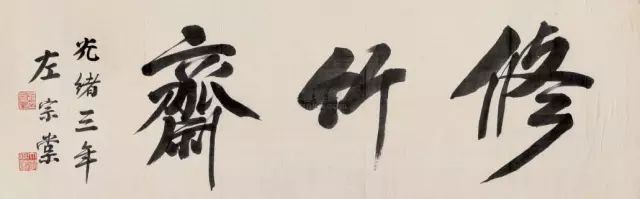 修竹齋
光緒三年
左宗棠